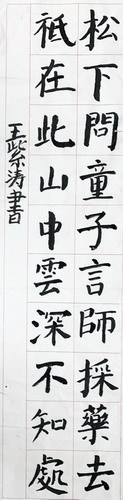 松下問童子言師採藥去
祇在此山中雲深不知處
王紫涛書